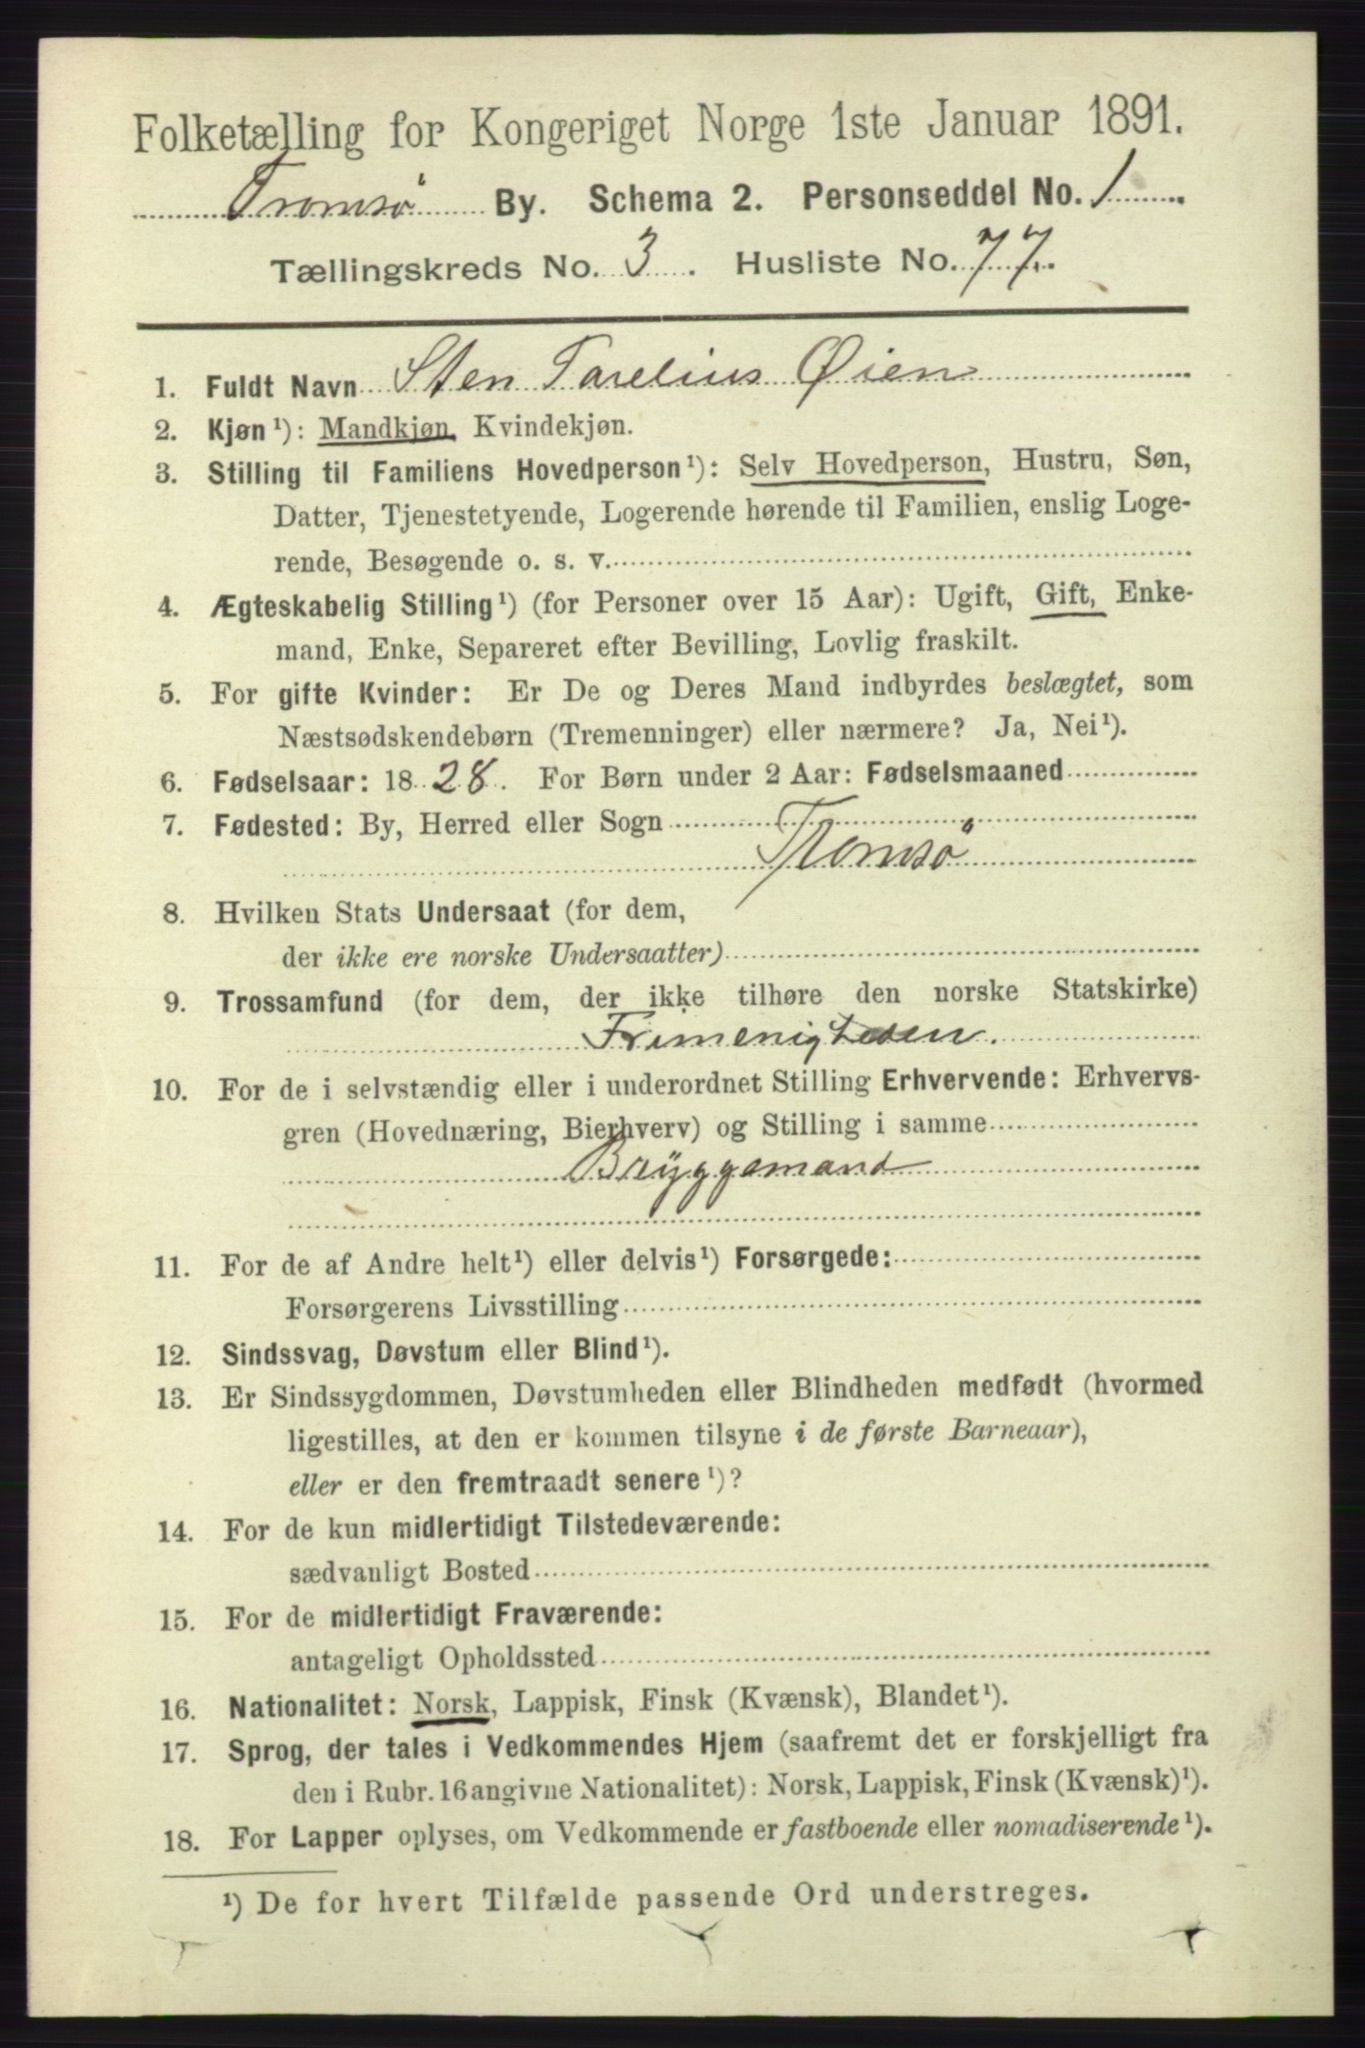 Folketælling for Kongeriget Norge 1ste Januar 1891.
Tromsø By. Schema 2. Personseddel No. 1
Tællingskreds No. 3. Husliste No. 77.
1. Fuldt Navn Sten Torelius Øien
2. Kjøn¹): Mandkjøn, Kvindekjøn.
3. Stilling til Familiens Hovedperson¹): Selv Hovedperson, Hustru, Søn,
Datter, Tjenestetyende, Logerende hørende til Familien, enslig Loge-
rende, Besøgende o. s. v.
4. Ægteskabelig Stilling¹) (for Personer over 15 Aar): Ugift, Gift, Enke-
mand, Enke, Separeret efter Bevilling, Lovlig fraskilt.
5. For gifte Kvinder: Er De og Deres Mand indbyrdes beslægtet, som
Næstsødskendebørn (Tremenninger) eller nærmere? Ja, Nei¹).
6. Fødselsaar: 1828. For Børn under 2 Aar: Fødselsmaaned
7. Fødested: By, Herred eller Sogn
Tromsø
8. Hvilken Stats Undersaat (for dem,
der ikke ere norske Undersaatter)
9. Trossamfund (for dem, der ikke tilhøre den norske Statskirke)
Frimenigheden.
10. For de i selvstændig eller i underordnet Stilling Erhvervende: Erhvervs-
gren (Hovednæring, Bierhverv) og Stilling i samme
Bryggemand
11. For de af Andre helt¹) eller delvis¹) Forsørgede:
Forsørgerens Livsstilling
12. Sindssvag, Døvstum eller Blind¹).
13. Er Sindssygdommen, Døvstumheden eller Blindheden medfødt (hvormed
ligestilles, at den er kommen tilsyne i de første Barneaar),
eller er den fremtraadt senere¹)?
14. For de kun midlertidigt Tilstedeværende:
sædvanligt Bosted
15. For de midlertidigt Fraværende:
antageligt Opholdssted
16. Nationalitet: Norsk, Lappisk, Finsk (Kvænsk), Blandet¹).
17. Sprog, der tales i Vedkommendes Hjem (saafremt det er forskjelligt fra
den i Rubr. 16 angivne Nationalitet): Norsk, Lappisk, Finsk (Kvænsk)¹).
18. For Lapper oplyses, om Vedkommende er fastboende eller nomadiserende¹).
¹) De for hvert Tilfælde passende Ord understreges.